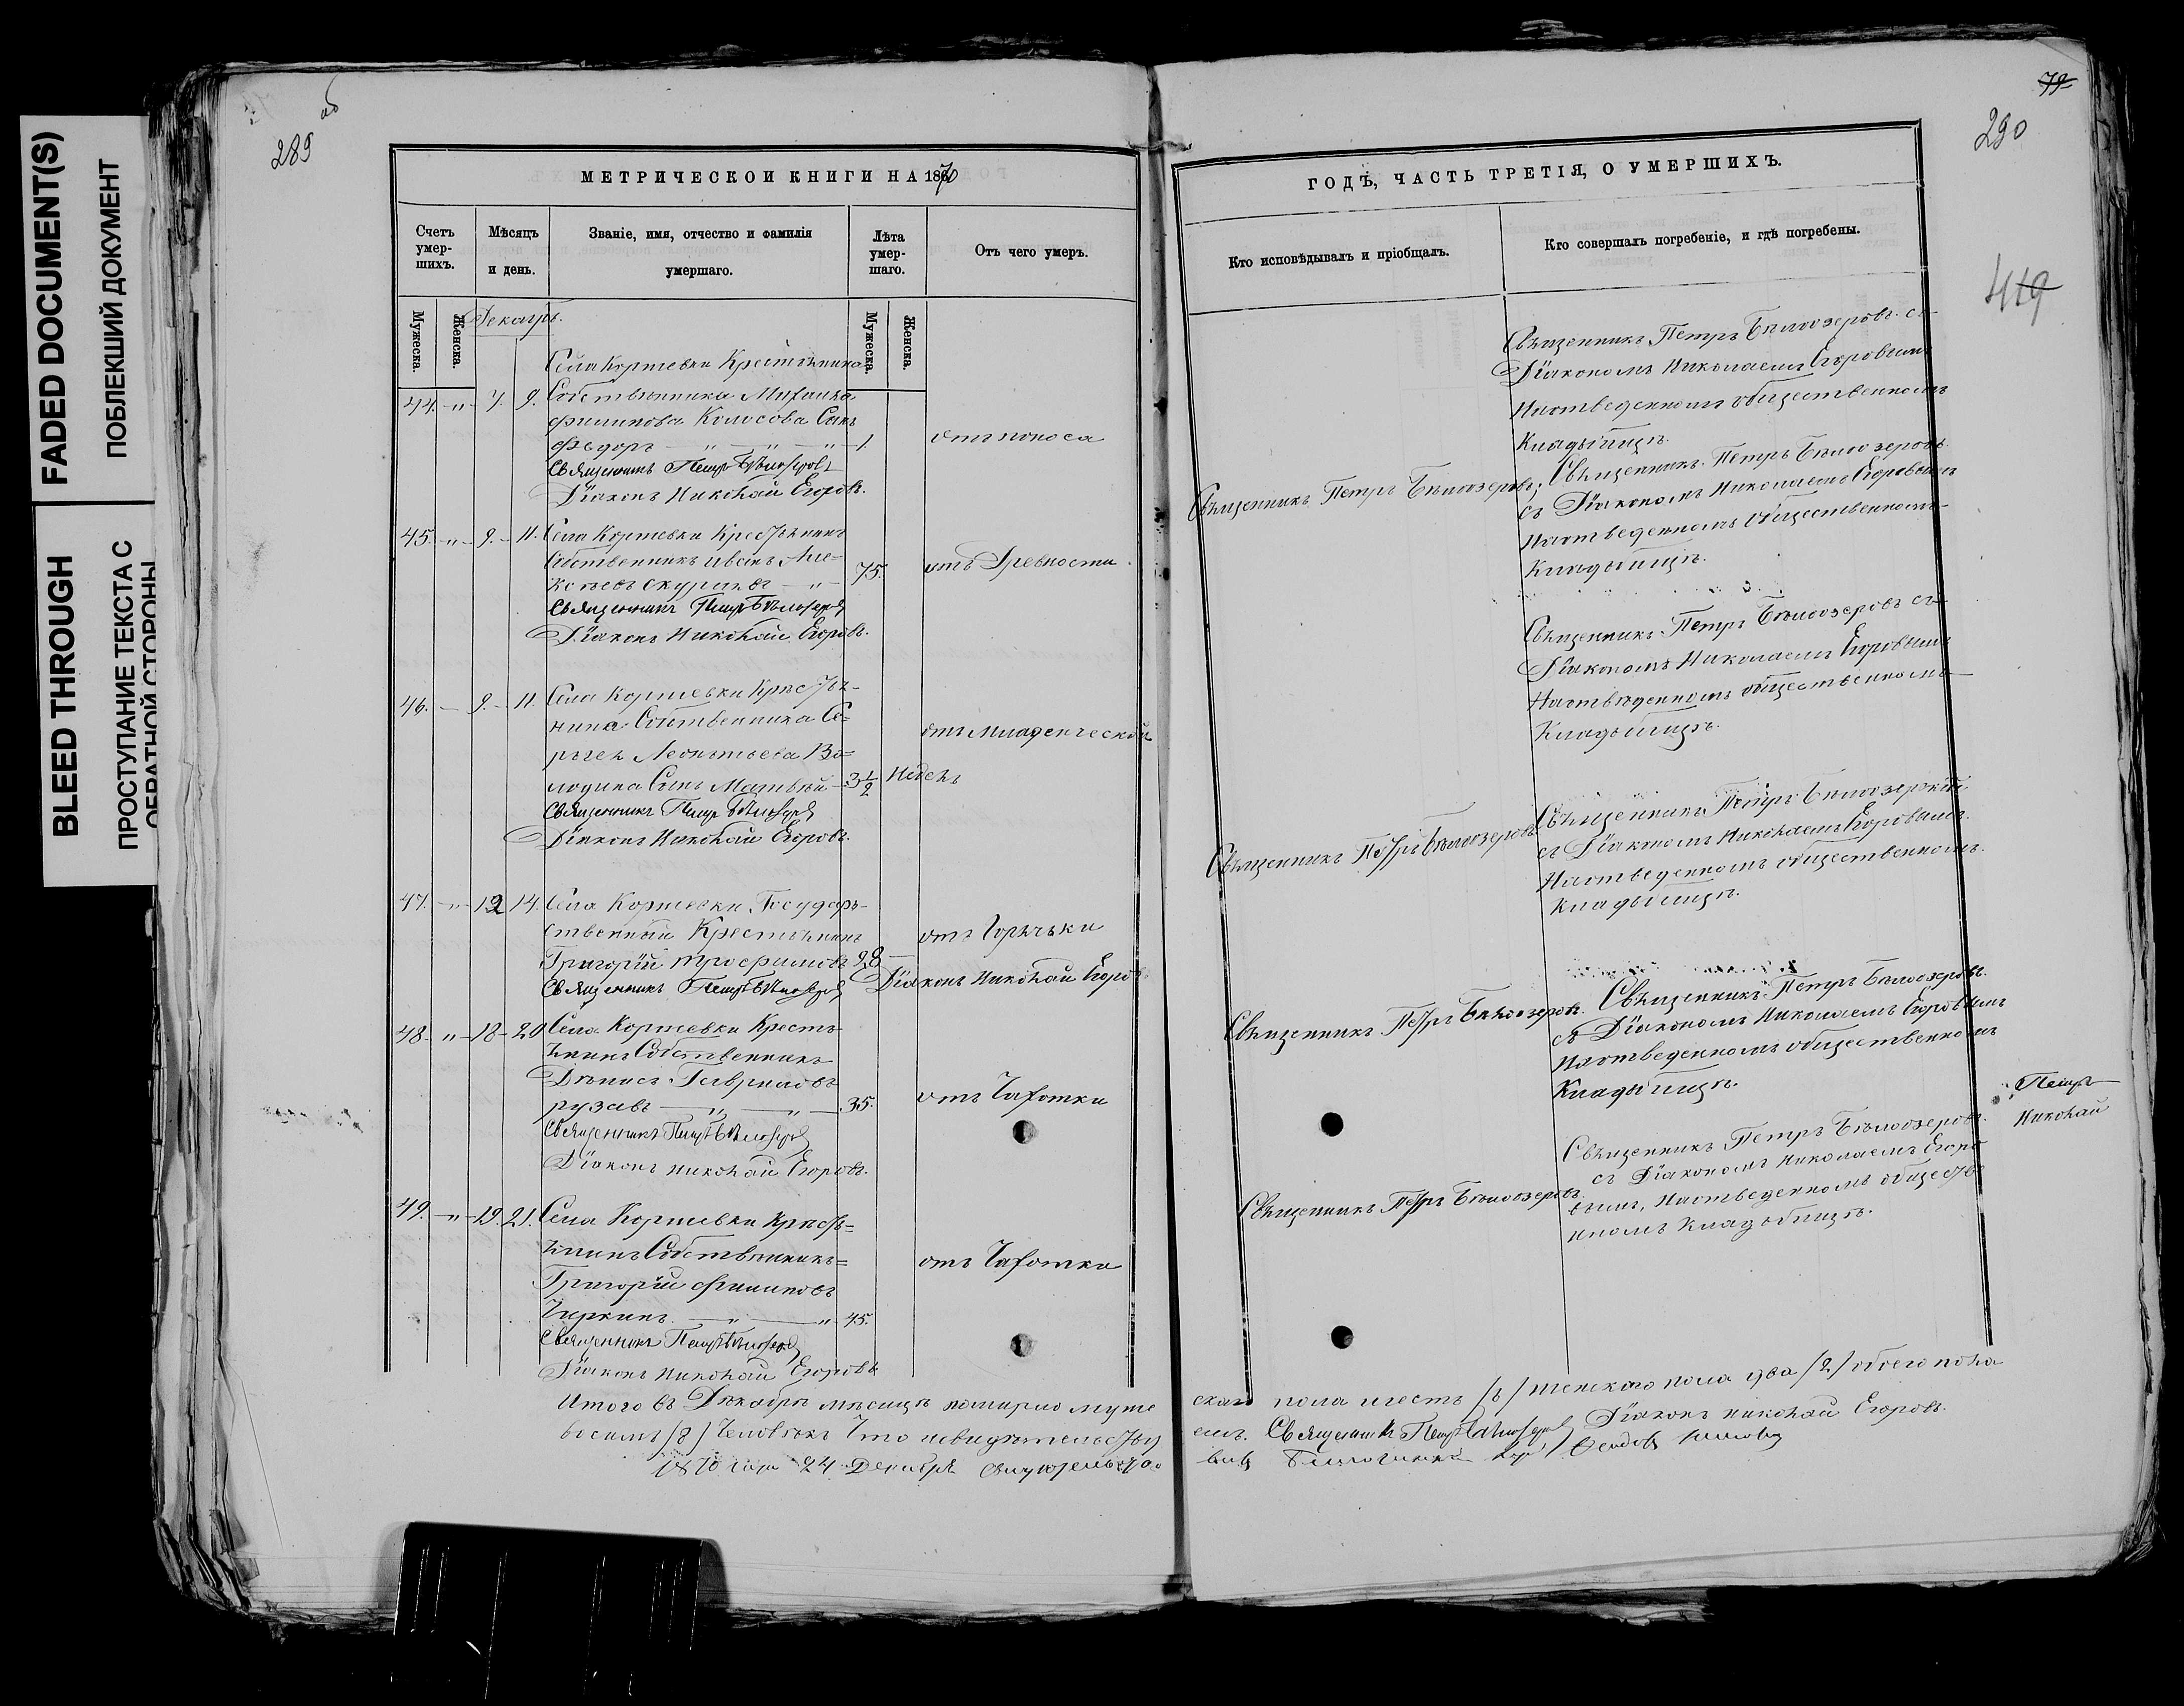 FADED DOCUMENT(S)
ПОБЛЕКШИЙ ДОКУМЕНТ
BLEED THROUGH
ПРОСТУПАНИЕ ТЕКСТА С
ОБРАТНОЙ СТОРОНЫ
289
об
МЕТРИЧЕСКОЙ КНИГИ НА 1870
Счетъ умер-шихъ.
Мѣсяцъ и день.
Званіе, имя, отчество и фамилія умершаго.
Лѣта умер-шаго.
Отъ чего умеръ.
Мужеска.
Женска.
Декабрь.
Мужеска.
Женска.
Села Коршевки Крестьянина
44. " 7. 9. Собственника Михаила
Филипова Колосова Сынъ
Ѳедоръ " " " 1 отъ поноса
Священникъ Петръ Бѣлозеровъ
Діаконъ Николай Егоровъ.
45. " 9. 11. Села Коршевки Крестьянинъ
Собственникъ Иванъ Але=
ксѣевъ " 75. отъ Древности.
Священникъ Петръ Бѣлозеровъ
Діаконъ Николай Егоровъ.
46. 9. 11. Села Коршевки Кресть-
нина Собственника Се=
ргея Леонтьева Во=
лодина Сынъ Матвѣй 3 1/2 Недель
отъ младенческой
Священникъ Петръ Бѣлозеровъ
Діаконъ Николай Егоровъ.
47. " 12 14. Села Коршевки Государ-
ственный Крестьянинъ
Григорій Трофимовъ 28 отъ Горячьки
Священникъ Петръ Бѣлозеровъ Діаконъ Николай Егоровъ
48. " 18 20 Села Коршевки Кресть-
янинъ Собственникъ
Денисъ Гавриловъ
" " 35. отъ Чахотки
Священникъ Петръ Бѣлозеровъ
Діаконъ Николай Егоровъ.
49. " 19. 21. Села Коршевки Кресть=
янинъ Собственникъ=
Григорій Филиповъ
Чиркинъ " " 45. отъ Чахотки
Священникъ Петръ Бѣлозеровъ
Діаконъ Николай Егоровъ
Итого въ Декабрѣ мѣсяцѣ померло муже
восемь /8/ Человѣкъ Что
1870 года 24 Декабря
79
290
419
ГОДЪ, ЧАСТЬ ТРЕТІЯ, О УМЕРШИХЪ.
Кто исповѣдывалъ и пріобщалъ.
Кто совершалъ погребеніе, и гдѣ погребены.
Священникъ Петръ Бѣлоозеровъ съ
Діакономъ Николаемъ Егоровымъ
На отведенномъ общественномъ
Кладбищѣ.
Священникъ Петръ Бѣлоозеровъ; Священникъ Петръ Бѣлоозеровъ
съ Діакономъ Николаемъ Егоровымъ
На отведенномъ общественномъ
Кладбищѣ.
Священникъ Петръ Бѣлоозеровъ съ
Діакономъ Николаемъ Егоровымъ
На отведенномъ общественномъ
Кладбищѣ.
Священникъ Петръ Бѣлоозеровъ Священникъ Петръ Бѣлоозеровъ
съ Діакономъ Николаемъ Егоровымъ.
На отведенномъ общественномъ.
Кладбищѣ.
Священникъ Петръ Бѣлоозеровъ. Священникъ Петръ Бѣлоозеровъ.
съ Діакономъ Николаемъ Егоровымъ
На отведенномъ общественномъ
Кладбищѣ.
Петръ
Николай
Священникъ Петръ Бѣлоозеровъ. Священникъ Петръ Бѣлоозеровъ
съ Діакономъ Николаемъ Егоро
вымъ, На отведенномъ обществе
нномъ Кладбищѣ.
скаго пола шесть /6/ женского пола два /2/ обоего пола
Священникъ Петръ Бѣлозеровъ Діаконъ Николай Егоровъ.